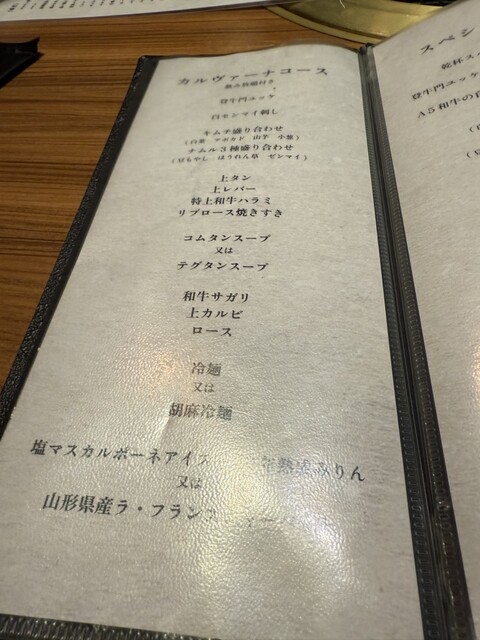 カルヴァーナコース
飲み放題付き
登牛門ユッケ
白センマイ刺し
キムチ盛り合わせ
(白菜 アボカド 山芋 小葱)
ナムル3種盛り合わせ
(豆もやし ほうれん草 ゼンマイ)
上タン
上レバー
特上和牛ハラミ
リブロース焼きすき
コムタンスープ
又は
テグタンスープ
和牛サガリ
上カルビ
ロース
冷麺
又は
胡麻冷麺
塩マスカルポーネアイス 年熟成みりん
又は
山形県産ラ・フランス
スペシ
乾杯ス
登牛門ユッケ
A5和牛の